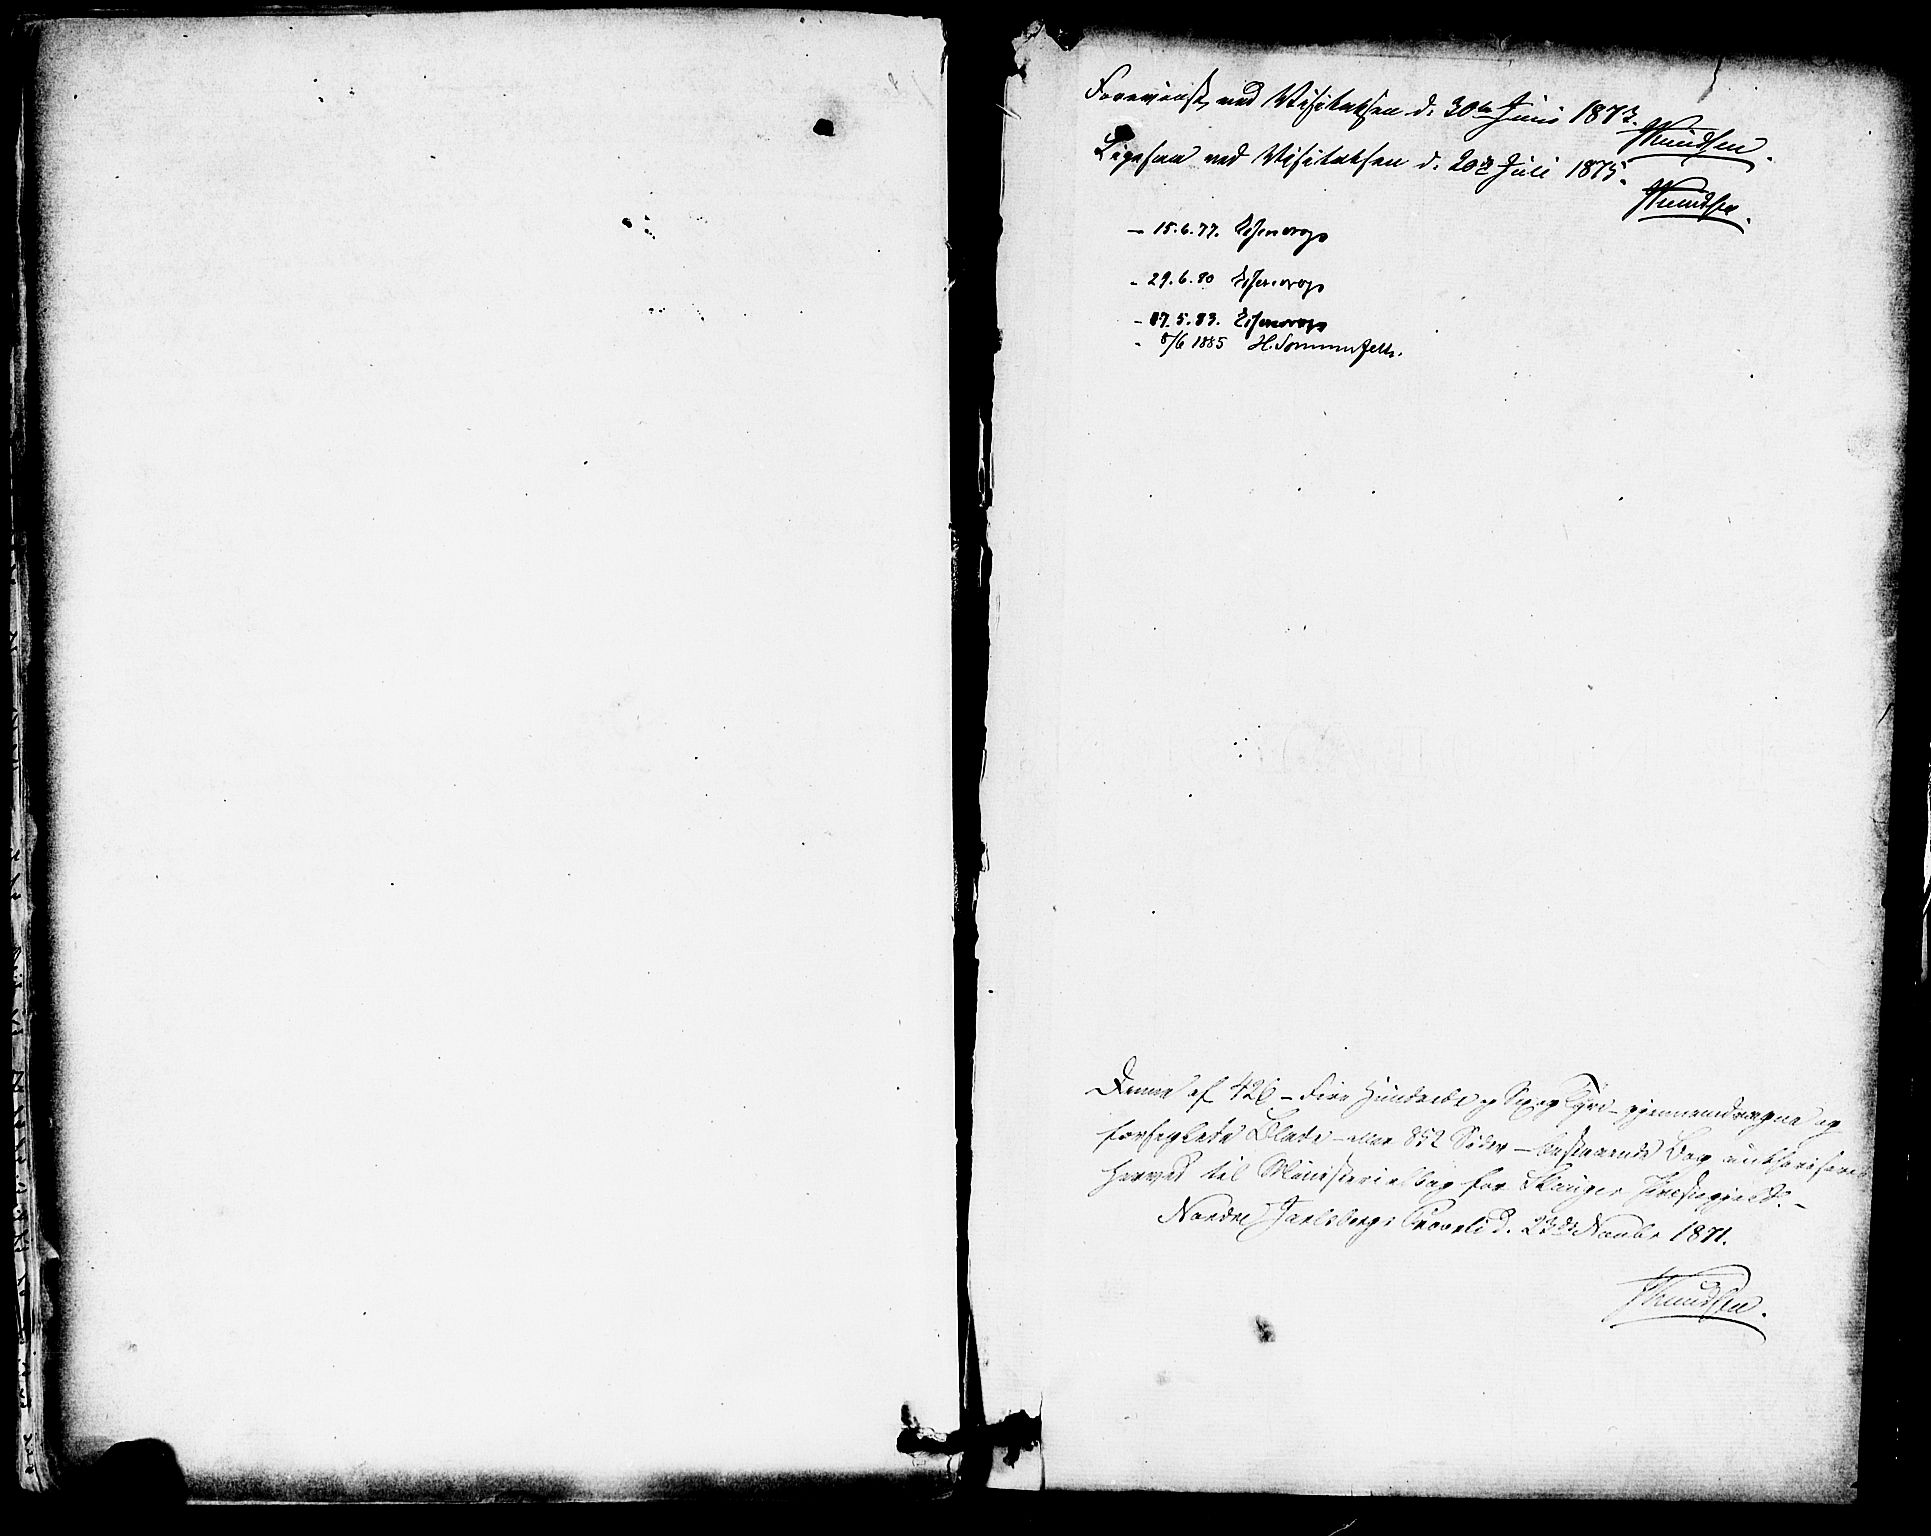 Foreviist ved Visitatsen d. 30te Juni 1873.
Knudsen.
Ligesaa ved Visitatsen d. 20de Juli 1875.
Knudsen.
- 15.6.77.
- 29.6.80
- 17.5.83.
- 8/6 1885 H. Sommerfeldt.
Denne af 426 - Fire Hundrede og Sex og Tyve - gjennemdragne og
forseglede Blade - eller 852 Sider - bestaaende Bog authoriseres
herved til Ministerialbog for Skouger Præstegjeld. -
Nordre Jarlsbergs Provsti d. 23de Novbr 1871.
Knudsen.